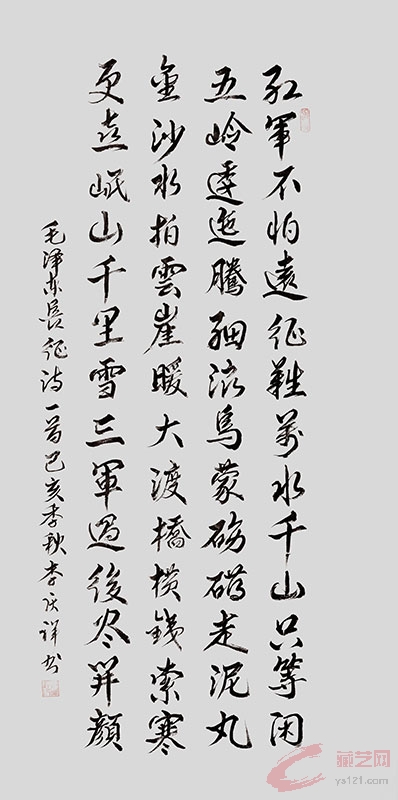 红軍不怕遠征難萬水千山只等闲
五岭逶迤騰细浪烏蒙磅礴走泥丸
金沙水拍雲崖暖大渡橋横鐵索寒
更喜岷山千里雪三軍過後尽开顔
毛泽东長征诗一首己亥季秋李庆祥书
藏艺网
ya121.com